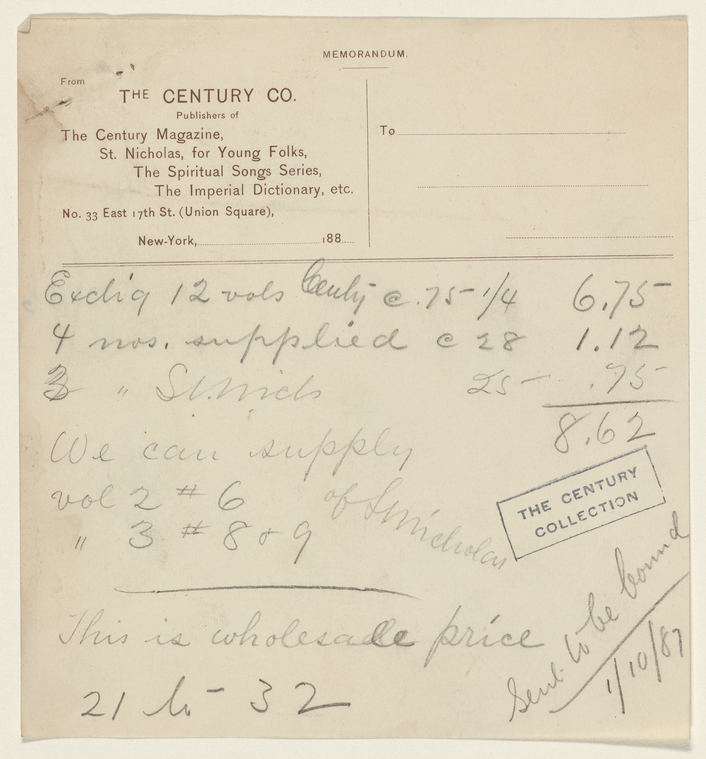 MEMORANDUM.
From
THE CENTURY CO.
Publishers of
The Century Magazine,
St. Nicholas, for Young Folks,
The Spiritual Songs Series,
The Imperial Dictionary, etc.
No. 33 East 17th St. (Union Square),
New-York, 188
To
Exch'g 12 vols Century @ .75 1/4 6.75
4 nos. supplied @ 28 1.12
3 " St. Nichs 25 .75
8.62
We can supply
vol 2 # 6 of St Nicholas
" 3 # 8 & 9
THE CENTURY
COLLECTION
This is wholesale price
21 to 32
Sent to be bound
1/10/87